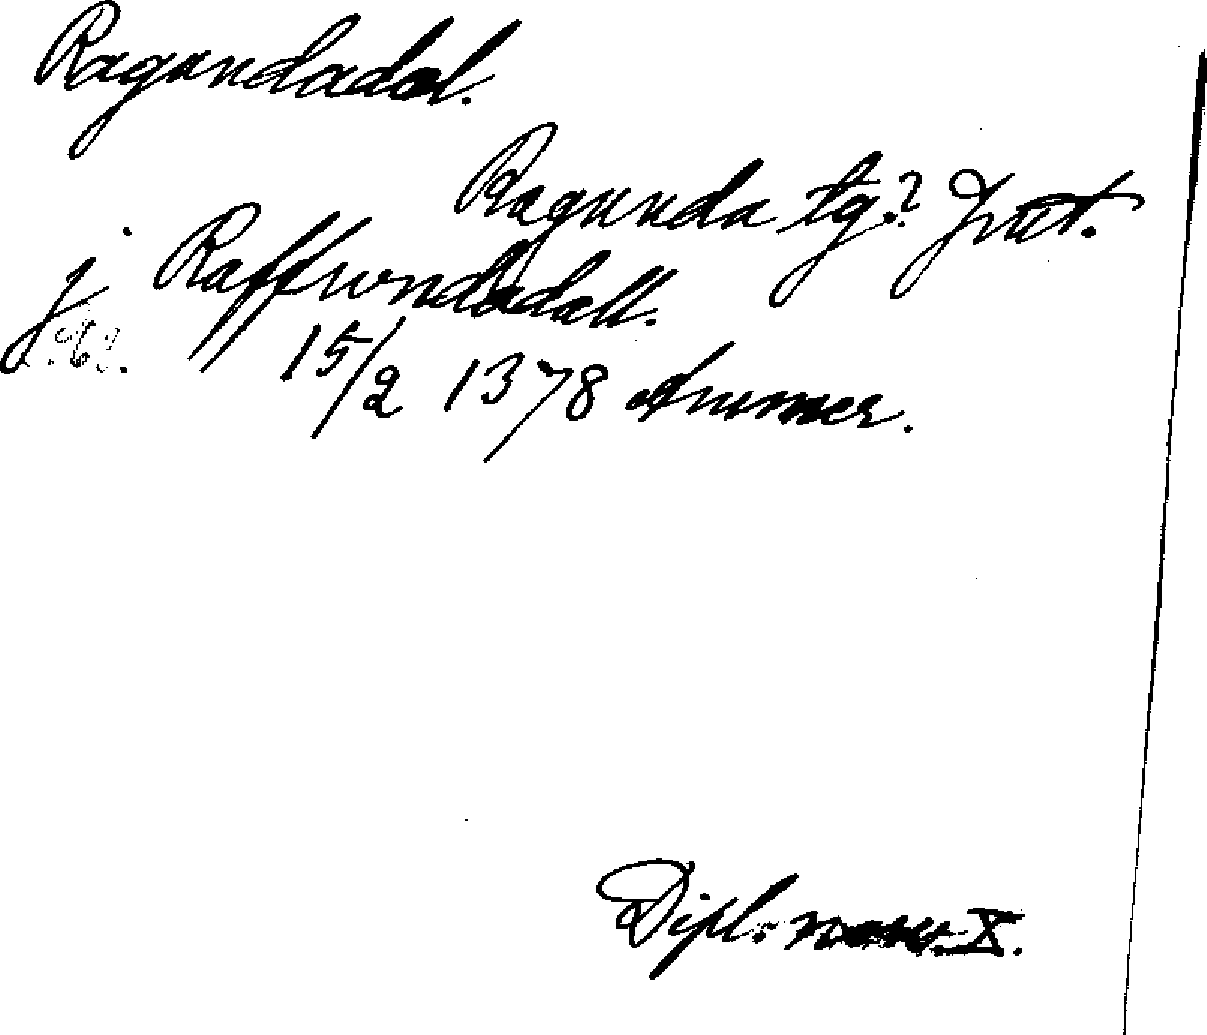 Ragundadal.
Ragunda tg? Jmt.
j Raffwndadall.
15/2 1378 Ammer.
Dipl. norv. X.